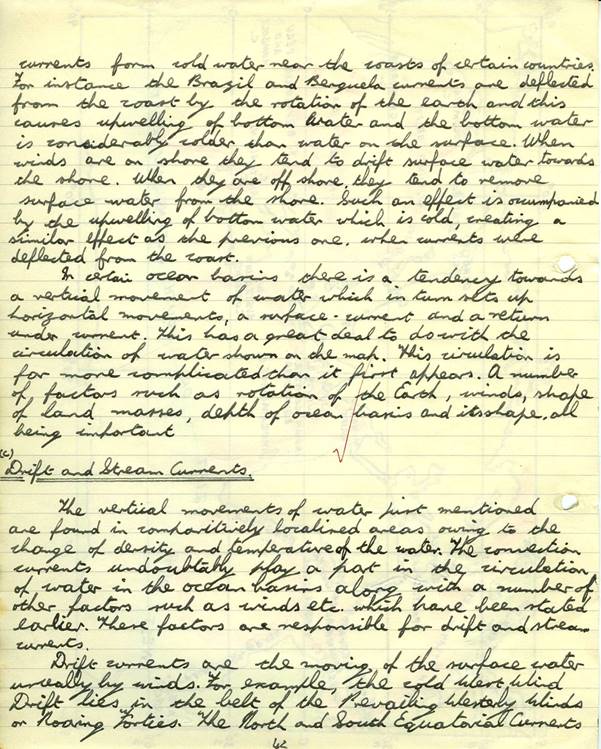 currents form cold water near the coasts of certain countries.
For instance the Brazil and Berguela currents are deflected
from the coast by the rotation of the earth and this
causes upwelling of bottom water and the bottom water
is considerably colder than water on the surface. When
winds are on shore they tend to drift surface water towards
the shore. When they are off shore, they tend to remove
surface water from the shore. Such an effect is accumpanied
by the upwelling of bottom water which is cold, creating a
similar effect as the previous one, when currents were
deflected from the coast.
In certain ocean basins there is a tendency towards
a vertical movement of water which in turn sets up
horizontal movements, a surface-current and a return
under current. This has a great deal to do with the
circulation of water shown on the map. This circulation is
far more complicated than it first appears. A number
of factors such as rotation of the Earth, winds, shape
of land masses, depth of ocean basis and its shape, all
being important
(c)
Drift and Stream Currents.
The vertical movements of water just mentioned
are found in comparitively localised areas owing to the
change of density and temperature of the water. The convection
currents undoubtably play a part in the circulation
of water in the ocean basins along with a number of
other factors such as winds etc. which have been stated
earlier. These factors are responsible for drift and stream
currents.
Drift currents are the moving of the surface water
usually by winds. For example, the cold West Wind
Drift lies in the belt of the Prevailing Westerly Winds
or Roaring Forties. The North and South Equatorial Currents
42